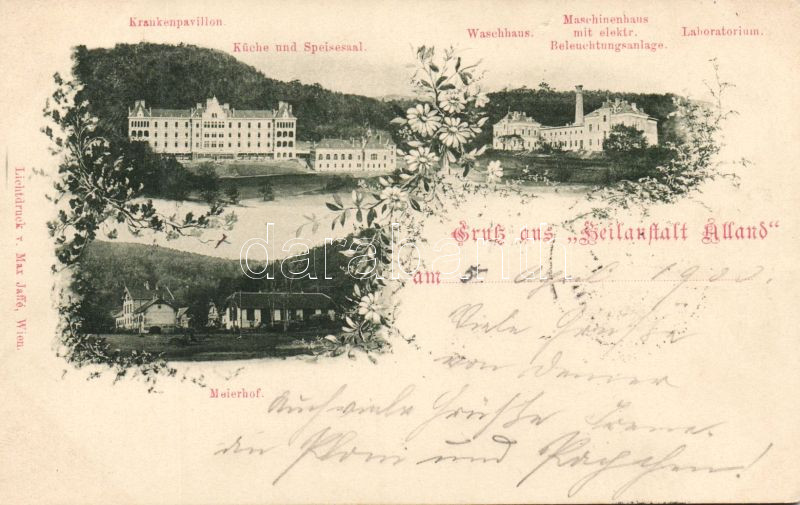 Krankenpavillon.
Küche und Speisesaal.
Waschhaus.
Maschinenhaus
mit elektr.
Beleuchtungsanlage.
Laboratorium.
Lichtdruck v. Max Jaffé, Wien.
Gruß aus „Heilanstalt Alland"
am April 1900
Viele Grüße
von Deiner
Auch viele Grüße
an und
darabanth.com
Meierhof.